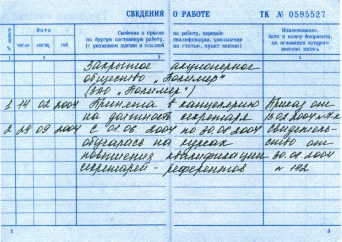 СВЕДЕНИЯ О РАБОТЕ ТК № 0595527
№ записи
Дата
число месяц год
Сведения о приеме на работу, переводе на другую постоянную работу, квалификации, увольнении (с указанием причин и ссылкой на статью, пункт закона)
Наименование, дата и номер документа, на основании которого внесена запись
1 2 3 4
Закрытое акционерное
общество „Полимер"
(ЗАО „Полимер")
1 14 02 2004 Принята в канцелярию Приказ от
на должность секретаря 13.02.2004
2 29 09 2004 С 01.06 2004 по 30.08 2004 Свидетель-
обучалась на курсах ство от
повышения квалификации 30.08 2004
секретарей-референтов № 142